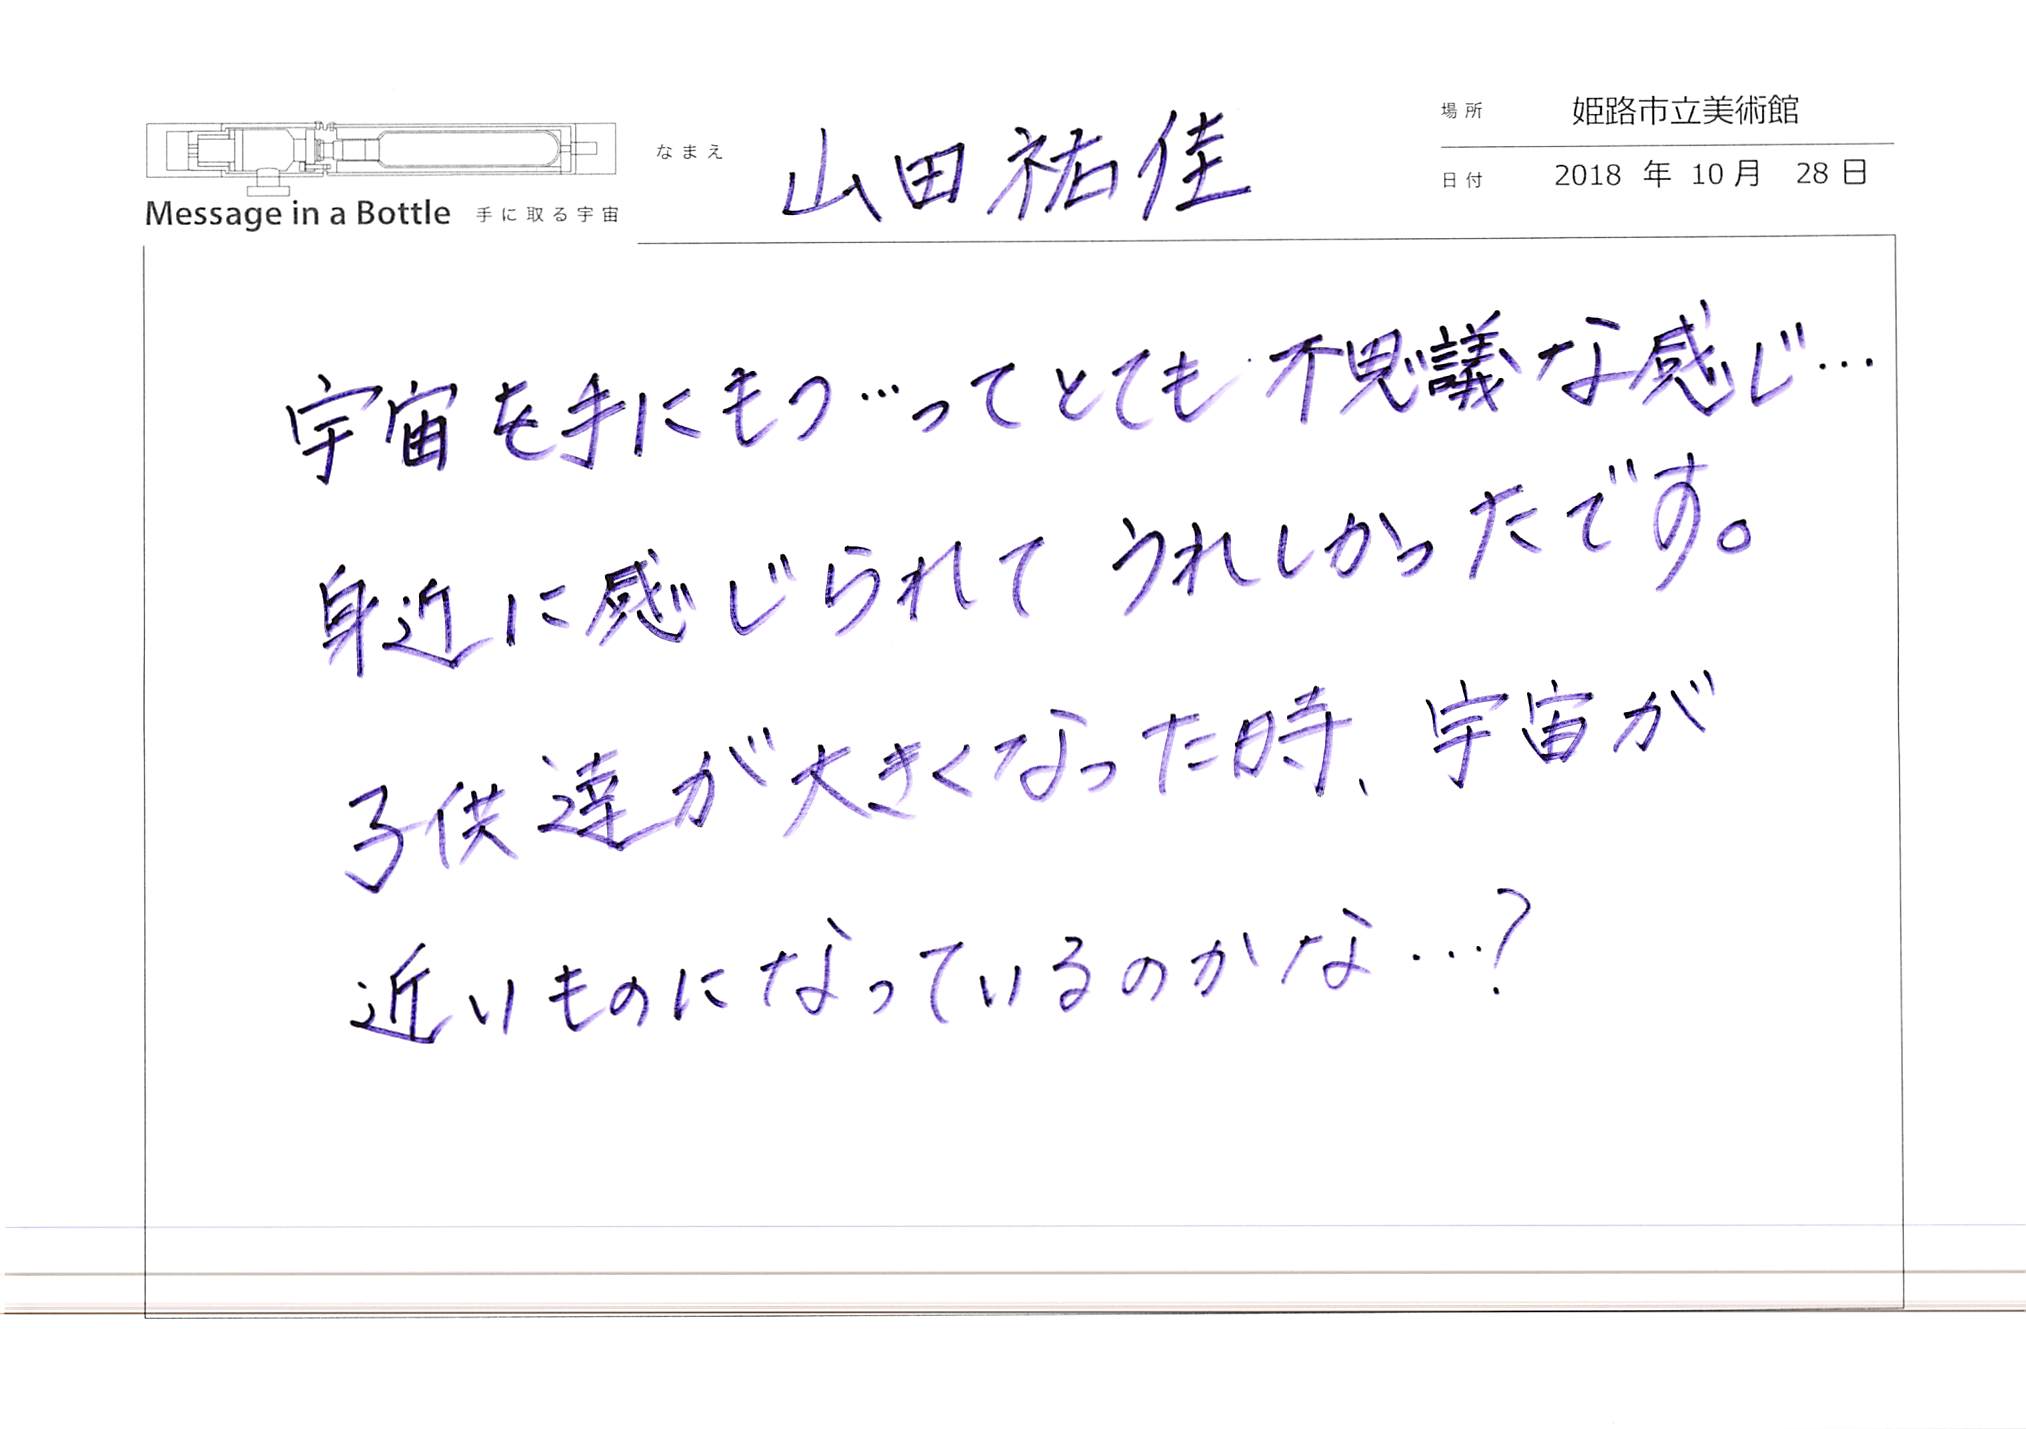 Message in a Bottle 手に取る宇宙
なまえ 山田祐佳
場所 姫路市立美術館
日付 2018 年 10 月 28 日
宇宙を手にもつ…ってとても不思議な感じ…
身近に感じられて うれしかったです。
子供達が大きくなった時、宇宙が
近いものになっているのかな…?